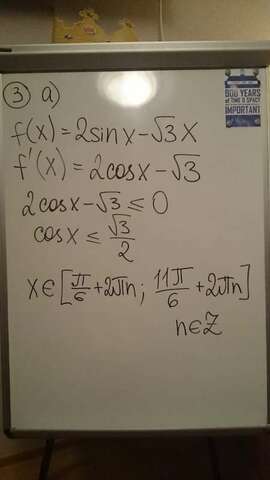 ③ a)
f(x)=2sinx-√3 x
f'(x)=2cosx-√3
2cosx-√3≤0
cosx≤√3/2
x∈[π/6+2πn; 11π/6+2πn]
n∈Z
900 YEARS
OF TIME & SPACE
IMPORTANT